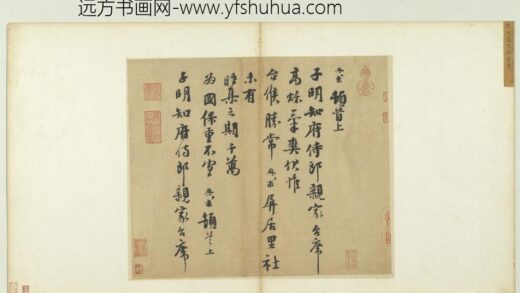 远方书画网-www.yfshuhua.com
頓首上
子明知府侍郎親家台席
高秋氣爽伏惟
台候勝常 屏居里社
未有
集之期千萬
為國保重不宣 頓首上
子明知府侍郎親家台席